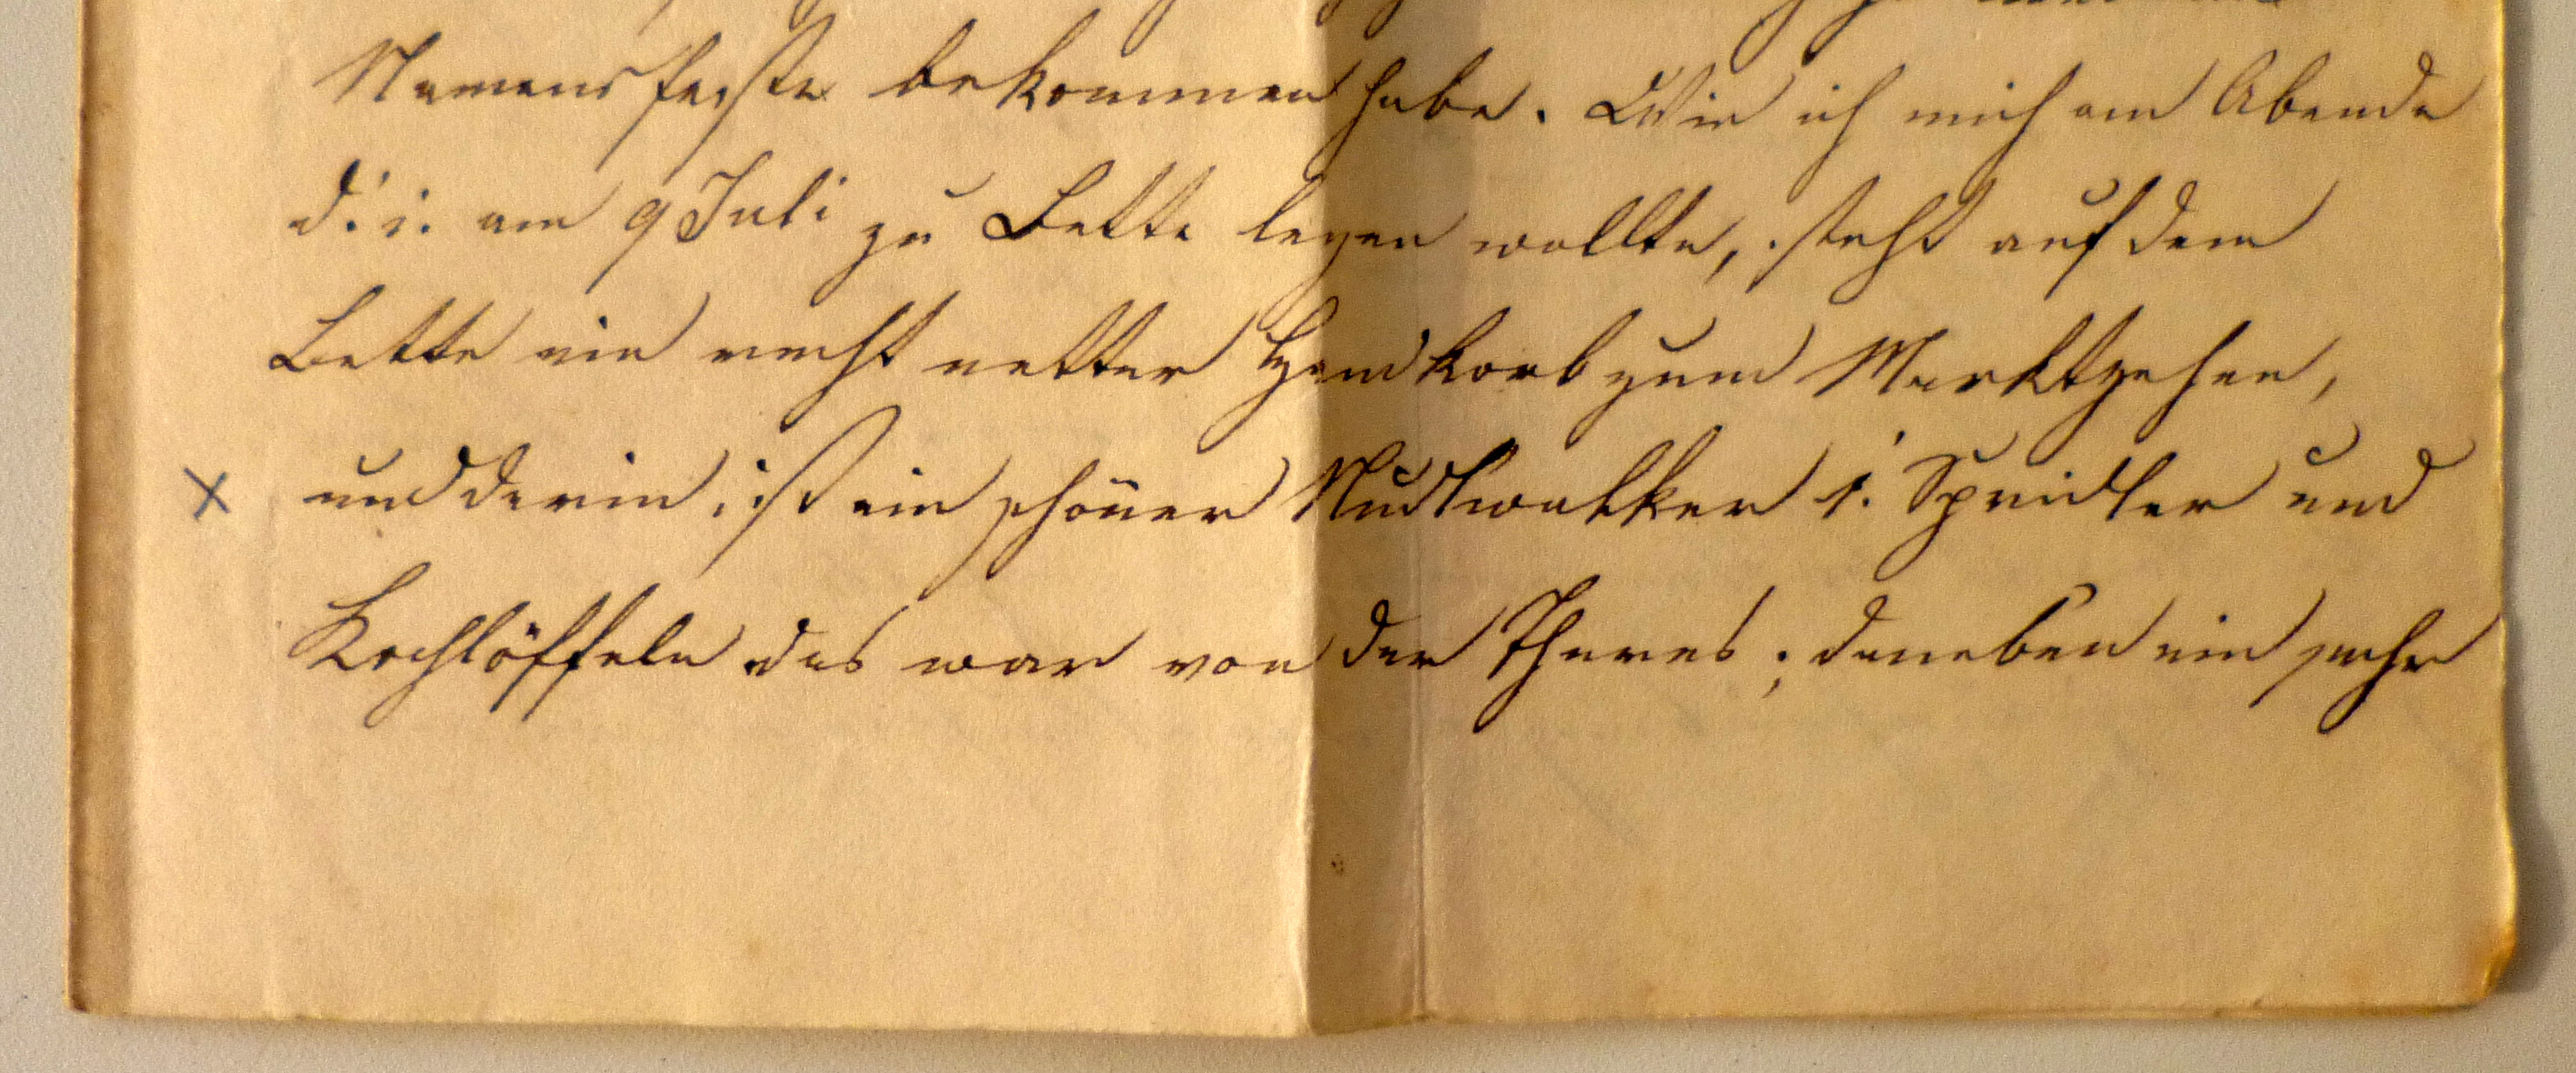 Namensfeste bekommen habe. Wie ich mich am Abende
d. i. am 9 Juli zu Bette legen wollte, steht auf dem
Bette ein recht netter Handkorb zum Marktgehen,
und darin ist ein schöner Nudlwalker s. Spridler und
Kochlöffeln das war von der Theres; daneben ein sehr